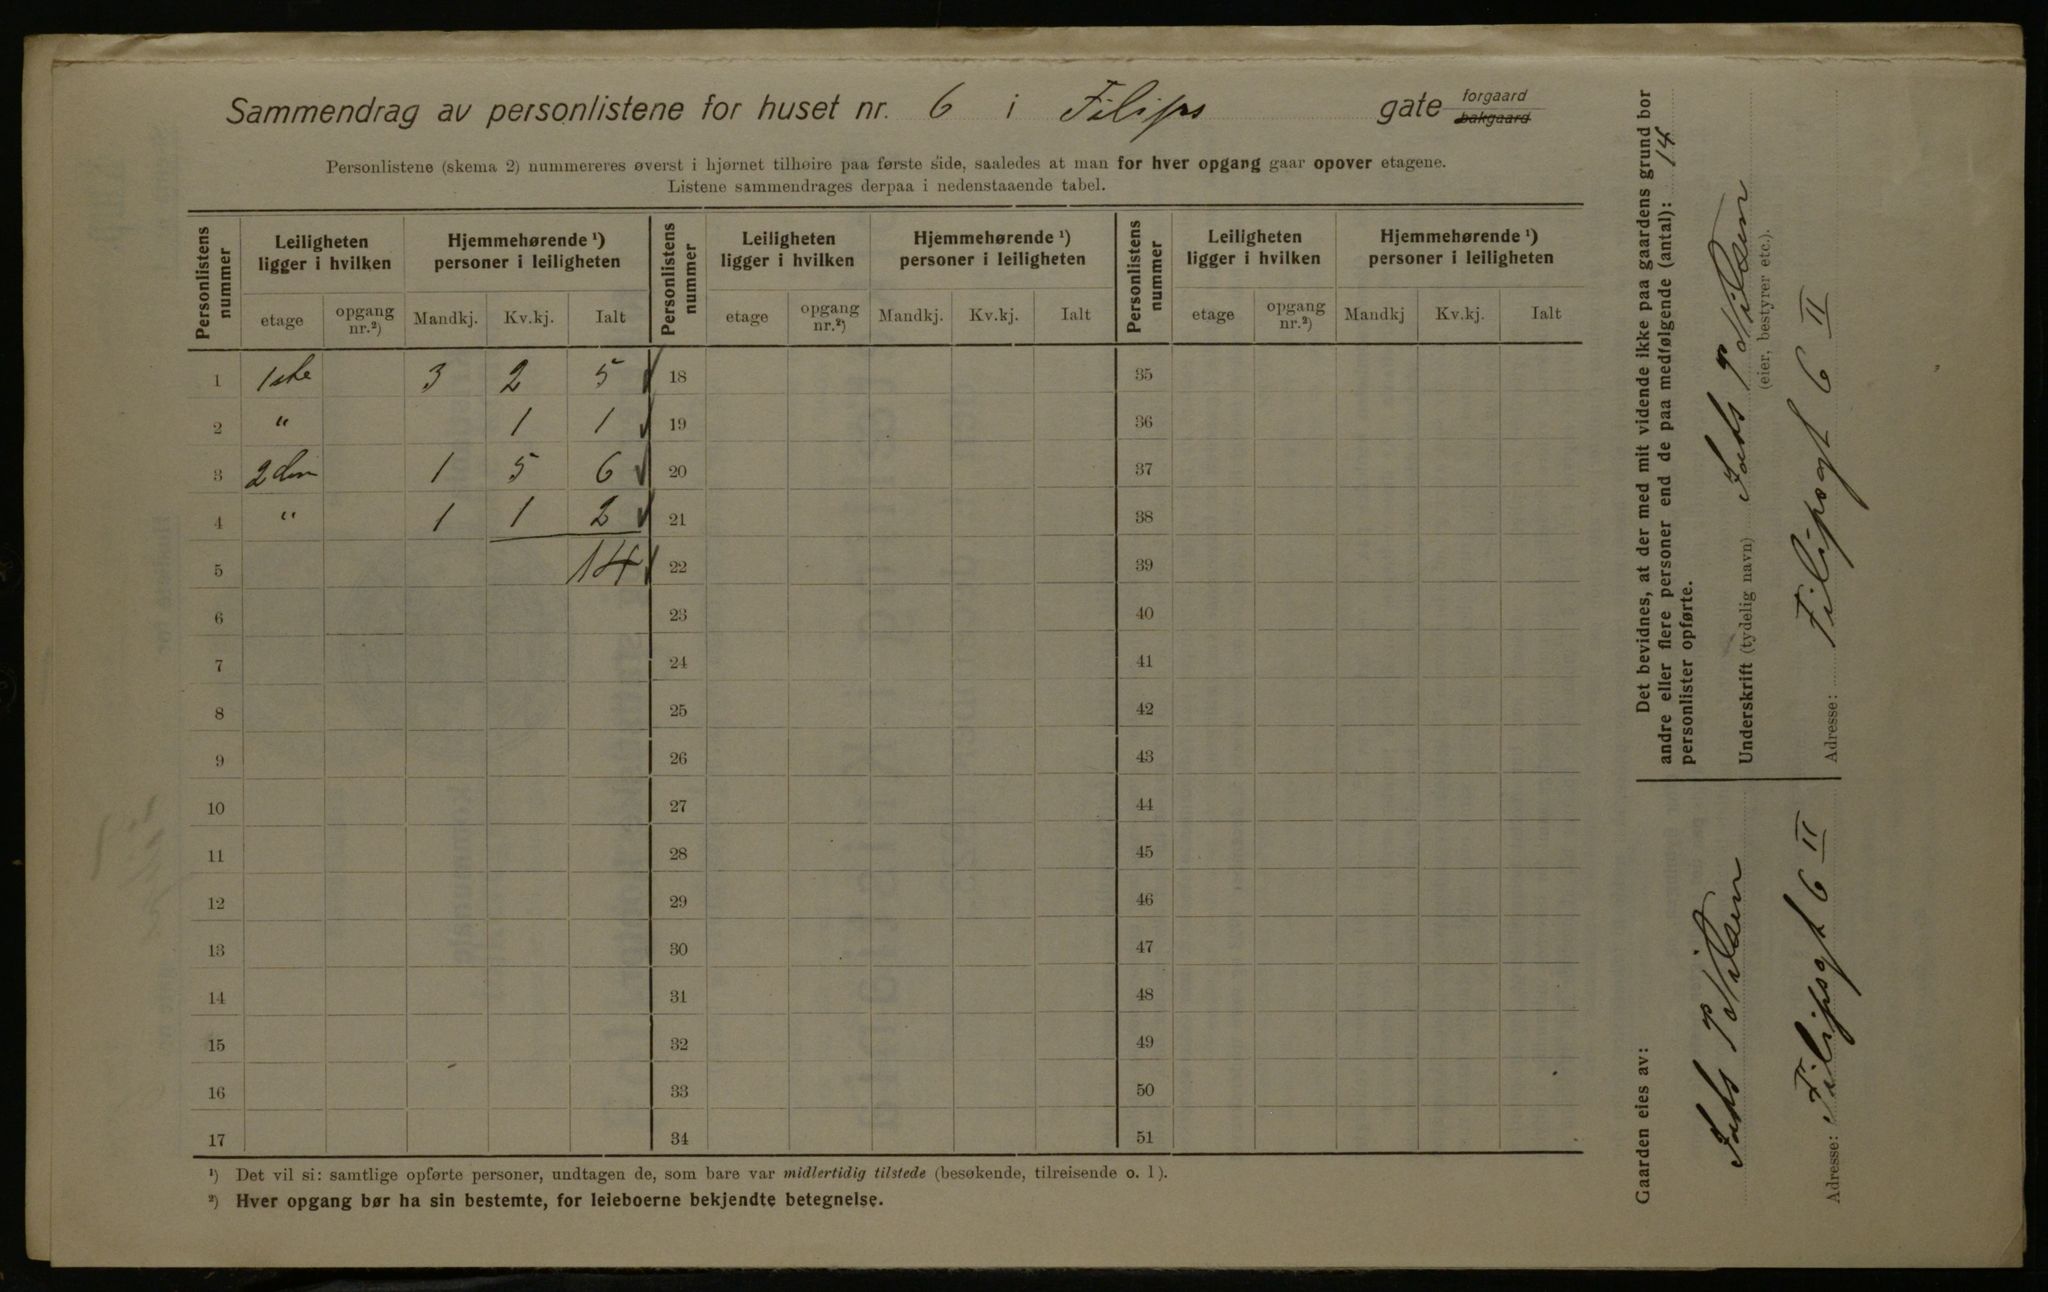 Sammendrag av personlistene for huset nr. 6 i Filips gate forgaard bakgaard
Personlistene (skema 2) nummereres øverst i hjørnet tilhøire paa første side, saaledes at man for hver opgang gaar opover etagene.
Listene sammendrages derpaa i nedenstaaende tabel.
Personlistens nummer Leiligheten ligger i hvilken Hjemmehørende ¹) personer i leiligheten Personlistens nummer Leiligheten ligger i hvilken Hjemmehørende ¹) personer i leiligheten Personlistens nummer Leiligheten ligger i hvilken Hjemmehørende ¹) personer i leiligheten
etage opgang nr.²) Mandkj. Kv.kj. Ialt etage opgang nr.²) Mandkj. Kv.kj. Ialt etage opgang nr.²) Mandkj Kv.kj. Ialt
1 1ste 3 2 5 18 35
2 " 1 1 19 36
3 2den 1 5 6 20 37
4 " 1 1 2 21 38
5 14 22 39
6 23 40
7 24 41
8 25 42
9 26 43
10 27 44
11 28 45
12 29 46
13 30 47
14 31 48
15 32 49
16 33 50
17 34 51
¹) Det vil si: samtlige opførte personer, undtagen de, som bare var midlertidig tilstede (besøkende, tilreisende o. l).
²) Hver opgang bør ha sin bestemte, for leieboerne bekjendte betegnelse.
Det bevidnes, at der med mit vidende ikke paa gaardens grund bor
andre eller flere personer end de paa medfølgende (antal): 14
personlister opførte.
Underskrift (tydelig navn) P Nilsen
(eier, bestyrer etc.).
Adresse: Filipsgt 6 II
Gaarden eies av:
P Nilsen
Adresse: Filipsgt 6 II